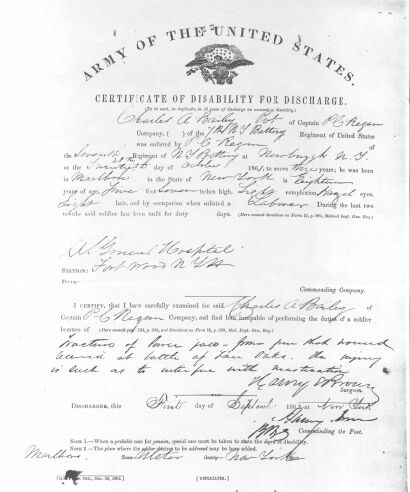 ARMY OF THE UNITED STATES.
CERTIFICATE OF DISABILITY FOR DISCHARGE.
(To be used, in duplicate, in all cases of discharge on account of disability.)
Charles A Barley Pvt of Captain P C Regan
Company, ( ) of the 7th N Y Battery Regiment of United States
was enlisted by P C Regan of
the Seventh Regiment of N Y Battery at Newburgh N. Y.
on the day of October 1861, to serve three years; he was born
in Marlboro in the State of New York is Eighteen
years of age, five feet seven inches high, Light complexion, Hazel eyes,
Light hair, and by occupation when enlisted a Laborer During the last two
months said soldier has been unfit for duty days.
U.S. General Hospital
STATION: Fort Wood N Y
DATE:
Commanding Company.
I CERTIFY, that I have carefully examined the said Charles A Barley of
Captain P C Regan Company, and find him incapable of performing the duties of a soldier
because of
Fracture of lower jaw from gun shot wound
received at battle of Fair Oaks. The injury
is such as to interfere with mastication
Surgeon.
DISCHARGED, this First day of 186 , at New York
Commanding the Post.
NOTE 1.—When a probable case for pension, special care must be taken to state the degree of disability.
NOTE 2.—The place where the soldier desires to be addressed may be here added.
Marlboro Town Ulster County New York
(DUPLICATES.)